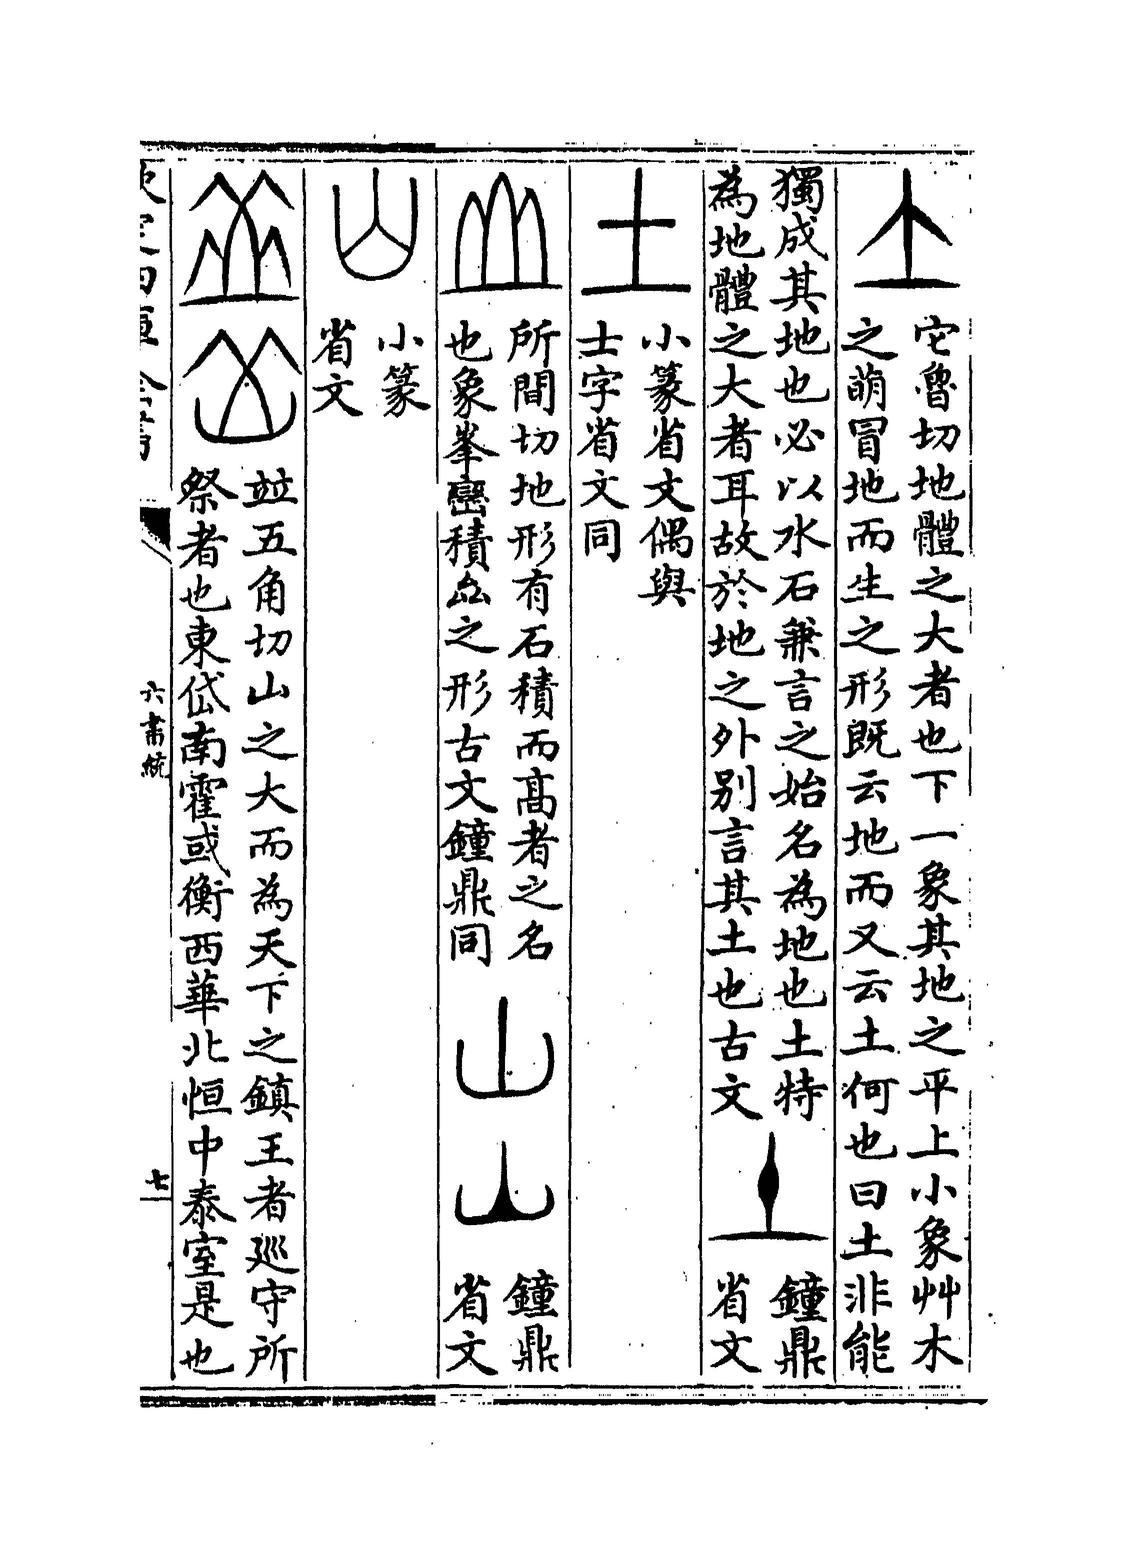 它魯切地體之大者也下一象其地之平上小象艸木
之萌冒地而生之形既云地而又云土何也曰土非能
獨成其地也必以水石兼言之始名為地也土特
為地體之大者耳故於地之外别言其土也古文
鐘鼎
省文
土
小篆省文偶與
士字省文同
所間切地形有石積而髙者之名
也象峯巒積之形古文鐘鼎同
山
山
鐘鼎
省文
小篆
省文
並五角切山之大而為天下之鎮王者巡守所
祭者也東岱南霍或衡西華北恒中泰室是也
欽定四庫全書
六書統
七